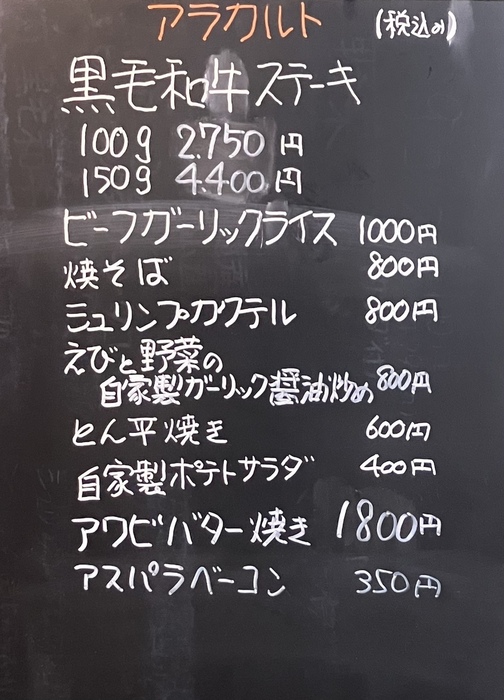 アラカルト (税込み)
黒毛和牛ステーキ
100g 2.750円
150g 4.400円
ビーフガーリックライス 1000円
焼そば 800円
ミュリンプカクテル 800円
えびと野菜の
自家製ガーリック醤油炒め 800円
とん平焼き 600円
自家製ポテトサラダ 400円
アワビバター焼き 1800円
アスパラベーコン 350円